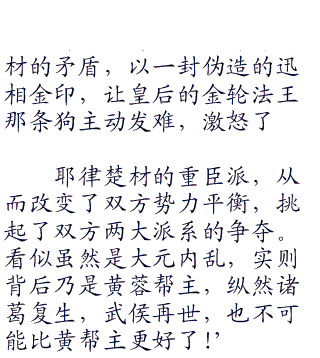 材的矛盾，以一封伪造的迅
相金印，让皇后的金轮法王
那条狗主动发难，激怒了
耶律楚材的重臣派，从
而改变了双方势力平衡，挑
起了双方两大派系的争夺。
看似虽然是大元内乱，实则
背后乃是黄蓉帮主，纵然诸
葛复生，武侯再世，也不可
能比黄帮主更好了！’